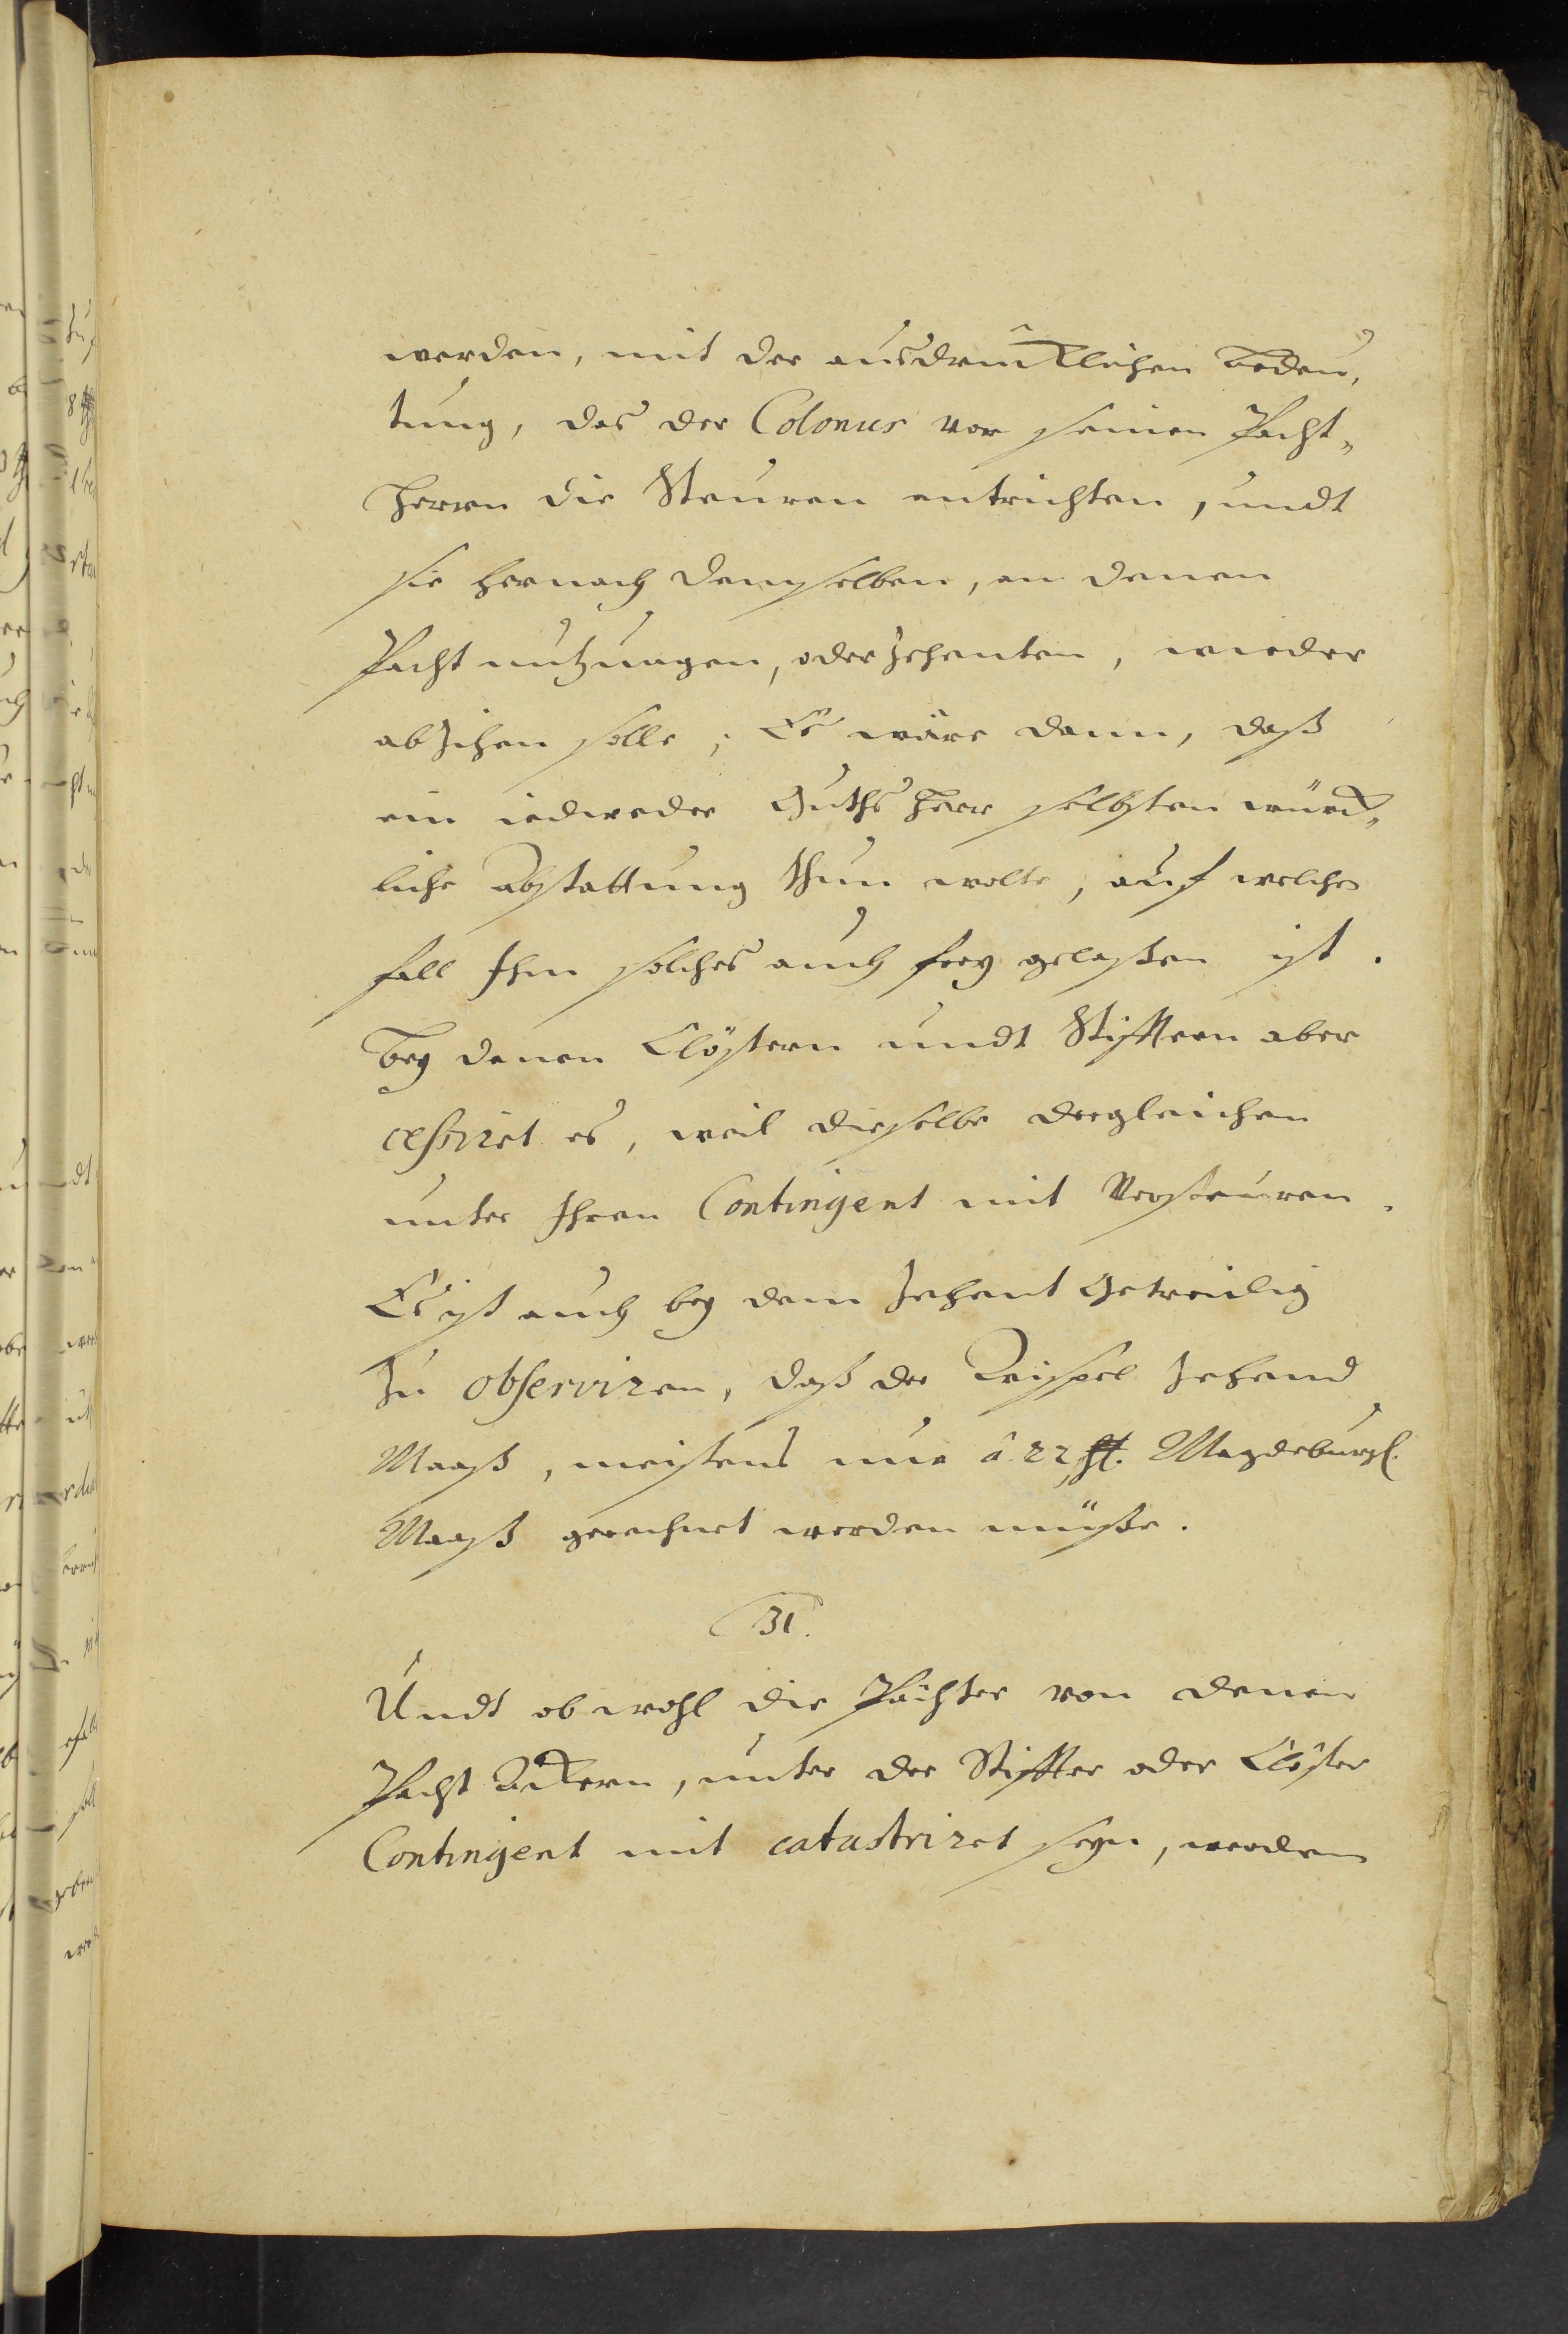 werden, mit der ausdrücklichen Bedeu,
tung, das der Colonus vor seinen Pacht„
Herrn die Steuren entrichten, undt
sie hernach demselben, an denen
Pacht nutzungen, oder Zehenten, wieder
abzihen solle; Es wäre dann, daß
ein iedweder Guths Herr selbsten würck„
liche abstattung thun wolte, auf welchen
fall Ihm solches auch frey gelaßen ist.
Bey denen Clöstern undt Stifftern aber
cessiret es, weil dieselbe dergleichen
unter Ihren Contingent mit Versteuren.
Es ist auch bey dem Zehent Getreidig
Zu observiren, daß der Zehend
Maaß, meistens nur â 22 Magdeburgl.
Maaß gerechnet werden müße.
31.
Undt ob wohl die Pächter von denen
Pacht Äckern, unter der Stiffter oder Clöster
Contingent mit catastriret seyn, werden